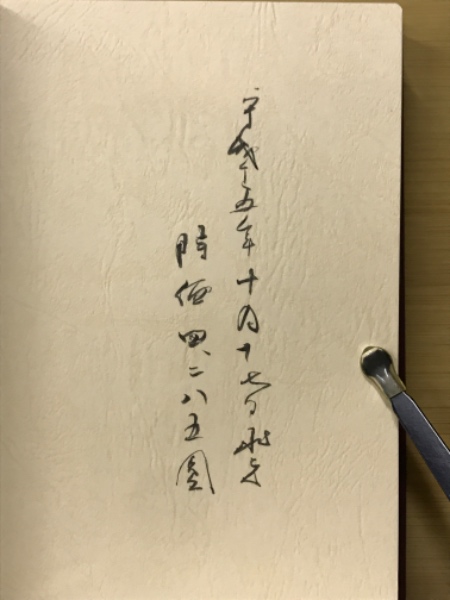 平成十五年十月十七日求之
時価四、二八五圓